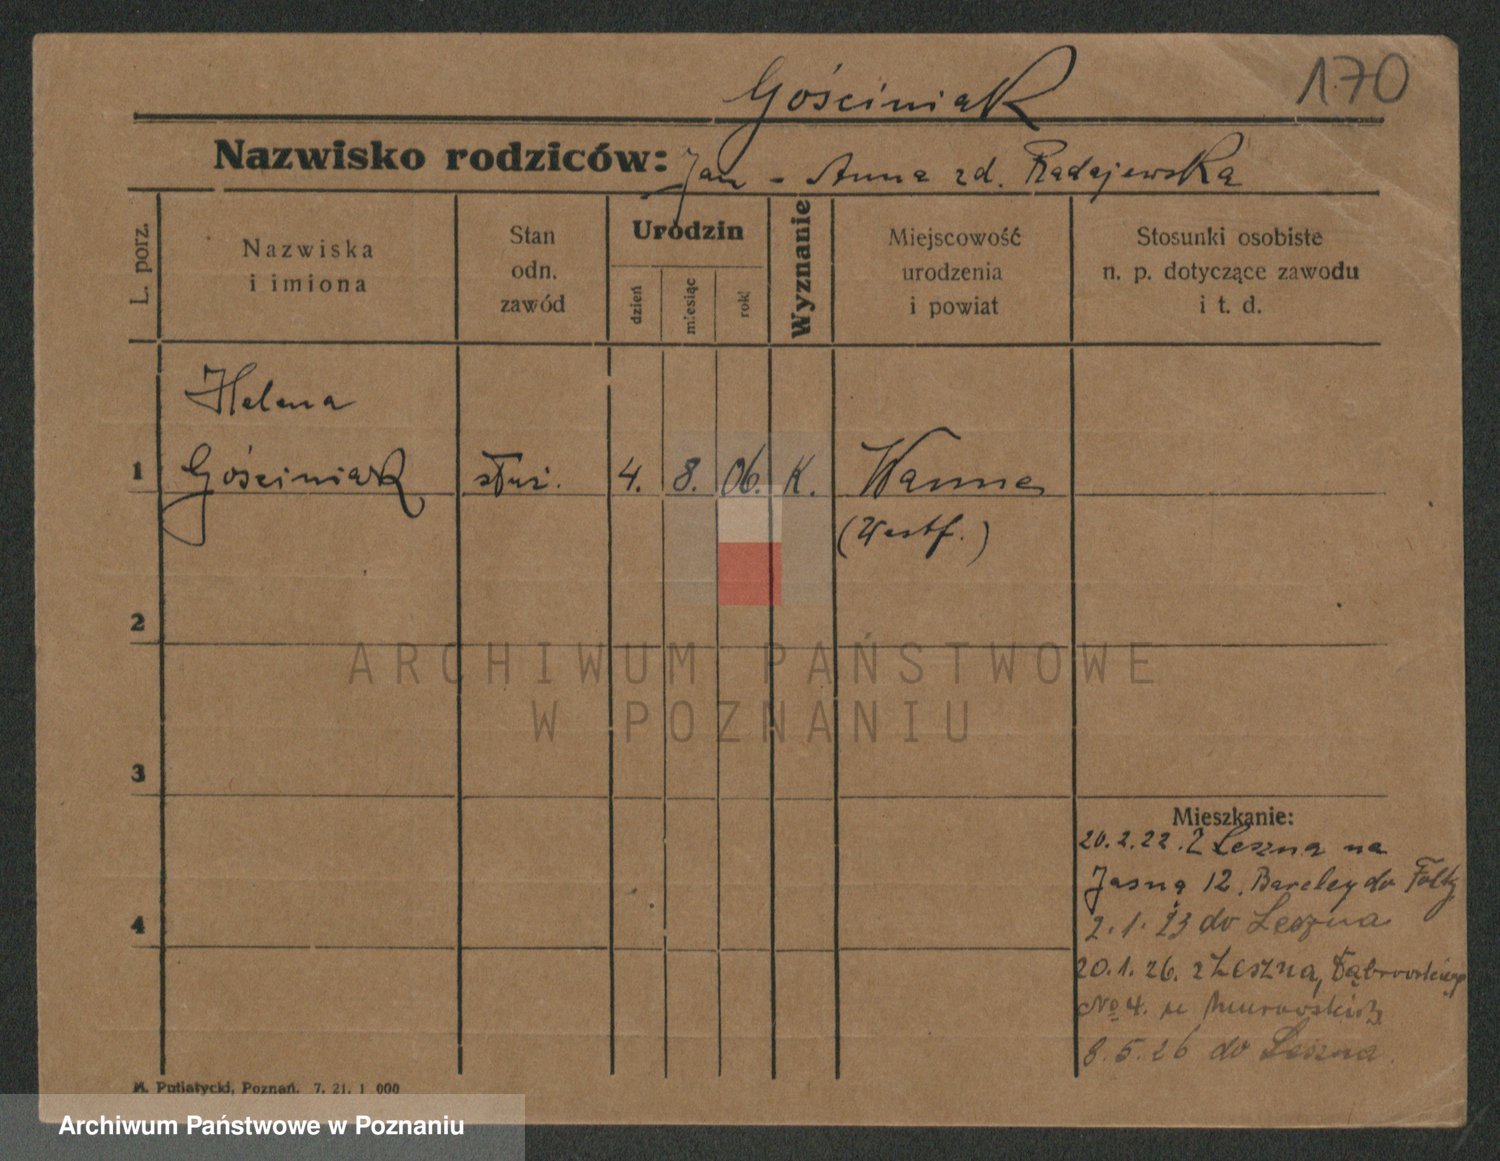 170
Gościniak
Nazwisko rodziców: Jan - Anna zd. Radajewska
L. porz.
Nazwiska
i imiona
Stan
odn.
zawód
Urodzin
dzień
miesiąc
rok
Wyznanie
Miejscowość
urodzenia
i powiat
Stosunki osobiste
n. p. dotyczące zawodu
i t. d.
Helena
1 Gościniak służ. 4. 8. 06. K. Wanne
(Westf.)
2
3
4
Mieszkanie:
20.2.22. Z Leszna na
Jasną 12. do
2.1.23 do Leszna
20.1.26. z Leszna, Dąbrowskiego
No 4. u
8.5.26 do Leszna
M. Putiatycki, Poznań. 7. 21. 1 000
ARCHIWUM PAŃSTWOWE
W POZNANIU
Archiwum Państwowe w Poznaniu